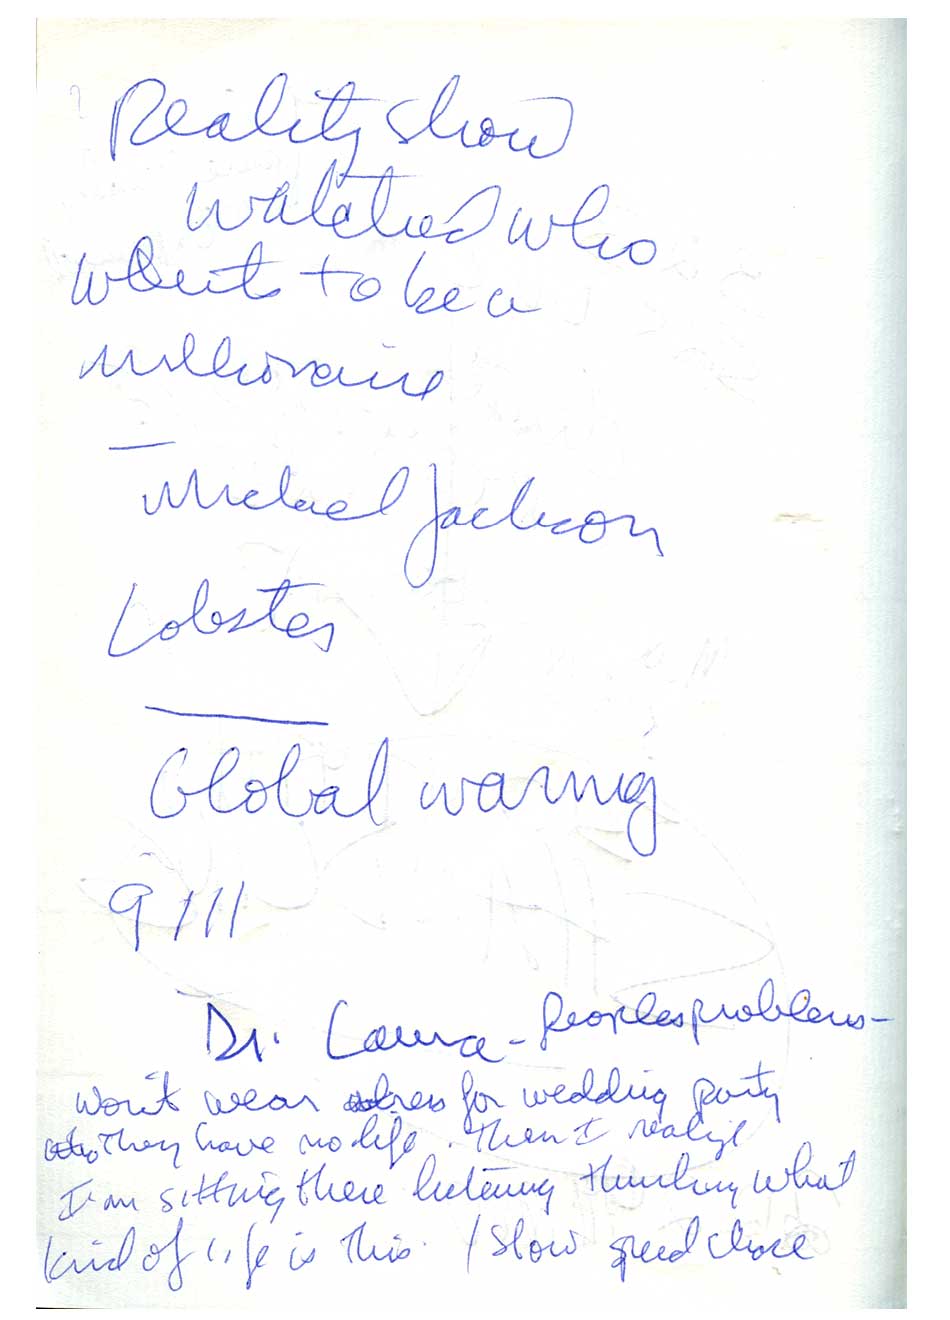 Reality show
watched who
wants to be a
millionaire
—
Michael Jackson
Lobster
Global warmig
9/11
Dr. Laura - Peoples problems -
won't wear dress for wedding party
They have no life. Then I realize
I am sitting there listening thinking what
kind of life is this. / Slow speed chase